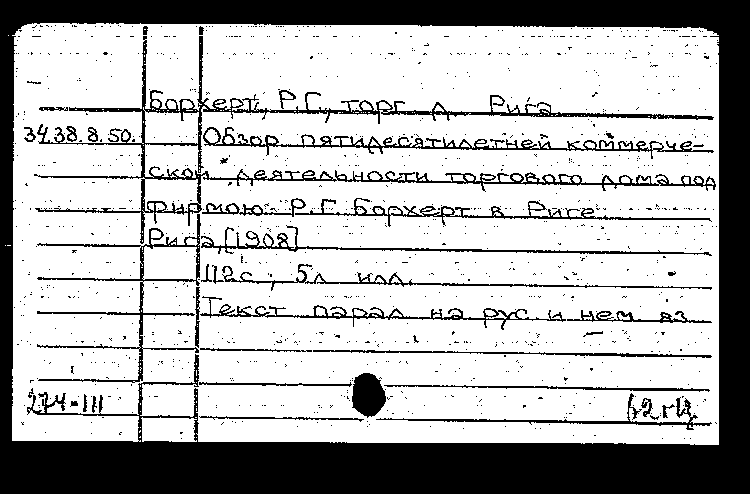 Борхерт, Р.Г., торг. д. Рига
34.38.8.50. Обзор пятидесятилетней коммерче-
ской деятельности торгового дома под
фирмою Р.Г. Борхерт в Риге.
Рига, [1908]
112с; 5л илл.
Текст парал на рус и нем яз
274-III